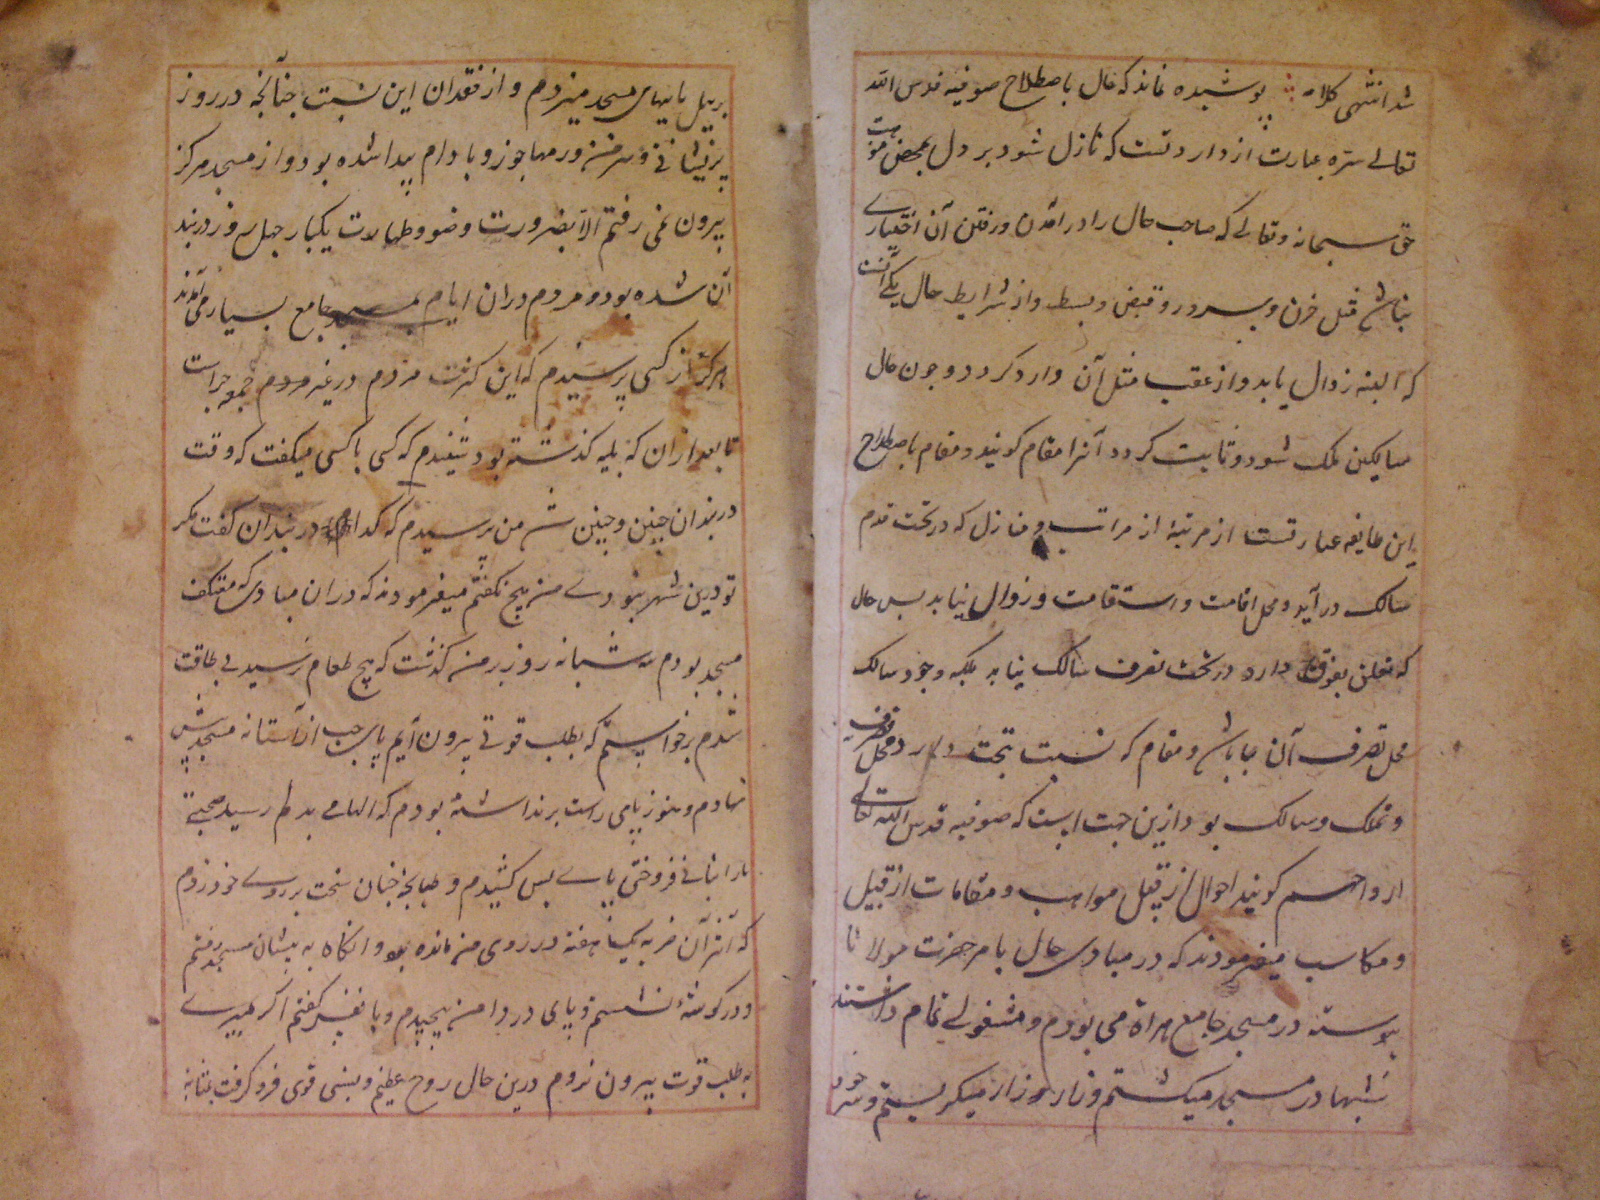 شد انتهی کلامه پوشیده نماند که حال باصطلاح صوفیه قدس الله
تعالے سره عبارت از واردتست که نازل شود بر دل بمحض موهبت
حق سبحانه وتعالے که صاحب حال را در آمدن ورفتن آن اختیارے
نباشد مثل حزن و سرور و قبض و بسط واز شرایط حال یکے آنست
که البته زوال یابد واز عقب مثل آن وارد کردد وجون حال
سالکین ملک شود وثابت کردد آنرا مقام کویند ومقام باصطلاح
این طایفه عبارتست از مرتبۀ از مراتب ومنازل که در تحت قدم
سالک در آید ومحل اقامت واستقامت وزوال نیابد بس حال
که تعلق بفوق دارد در تحت تصرف سالک نیاید بلکه وجود سالک
محل تصرف آن باشد ومقام که نسبت بتحت دارد محل تصرف
وتملک سالک بود ازین جهت است که صوفیه قدس الله تعالے
ارواحهم کویند احوال از قبیل مواهب ومقامات از قبیل
ومکاسب میفرمودند که در مبادی حال بامر حضرت مولانا
پیوسته در مسجد جامع هراة می بودم ومشغولے تمام داشتند
شبها در مسجد میکشتم وزار زار میکریستم وسر خود
بر پیل پایهای مسجد میزدم واز فقدان این نسبت جنانجه در روز
پریشانی وسر من ورمها جوز وبادام پیدا شده بود واز مسجد مرکز
بیرون نمی رفتم الا بضرورت وضو وطهارت یکبار جهل روز دربند
آن شده بود ومردم دران ایام بمسجد جامع بسیار می آمدند
هرکز از کسی پرسیدم که این کثرت مردم در غیر جمعه جراست
تا بعد ازان که بلیه کذشته بود شنیدم که کسی با کسی میکفت که وقت
دربندان جنین وجنین شد من پرسیدم که کدام دربندان کفت مکر
تو درین شهر نبودے من هیج نکفتم میفرمودند که دران مبادی که معتکف
مسجد بودم سه شبانه روز بر من کذشت که هیج طعام نرسید بی طاقت
شدم برخواستم که بطلب قوتے بیرون آیم پای جب از آستانه مسجد پیش
نهادم وهنوز پای راست برنداشتۀ بودم که الهامے بدلم رسید صحبت
مارا بنانے فروختی پاے بس کشیدم وطبانجه جنان سخت بر روے خود زدم
که اثر آن ضربه یکهفته در روی من مانده بود وانکاه به پیشان مسجد رفتم
ودر کوشۀ نشستم وپای در دامن پیجیدم وبا نفس کفتم اکر بمیرے
به طلب قوت بیرون نروم درین حال روح عظیم وبسی قوی فرو کرفت بمثابه